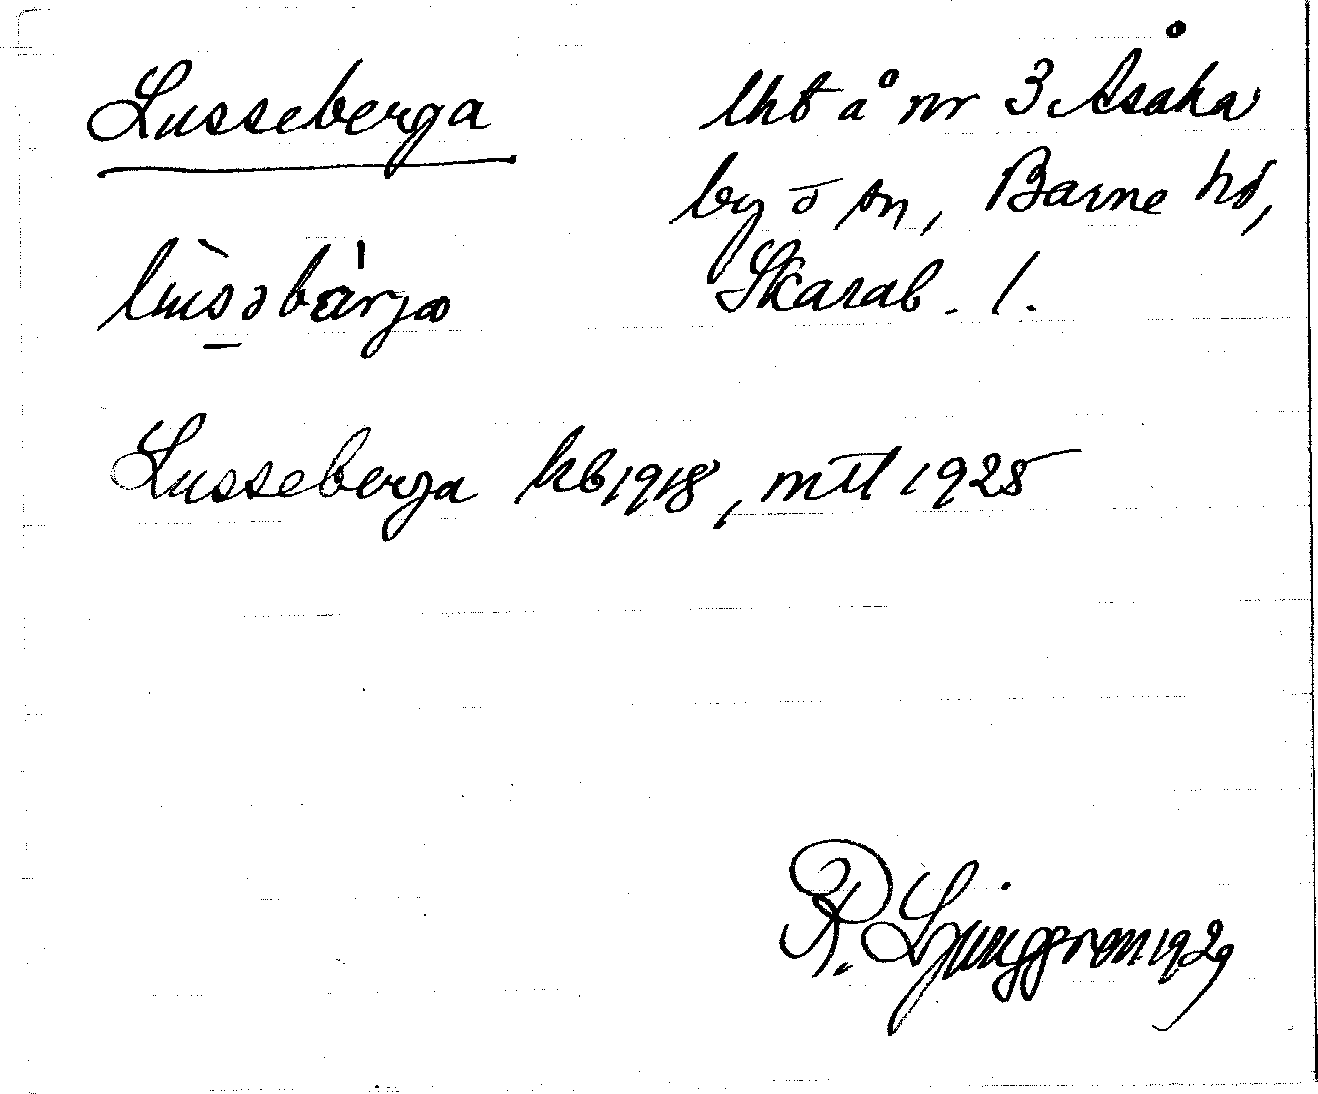 Lusseberga
lht å nr 3 Åsaka
by o sn, Barne hd,
Skarab. l.
lùsəbä́rja
Lusseberga kb 1918, mtl 1925
R. Ljunggren 1929